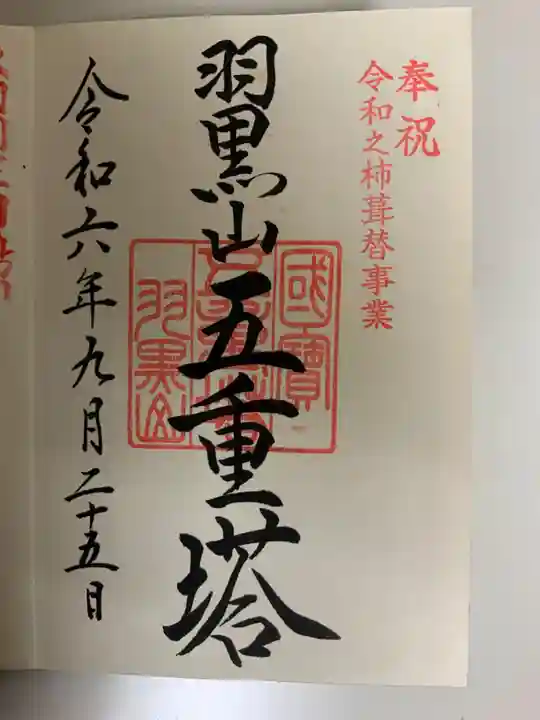 奉祝
令和之杮葺替事業
羽黒山五重塔
國寶
五重塔
羽黒山
令和六年九月二十五日